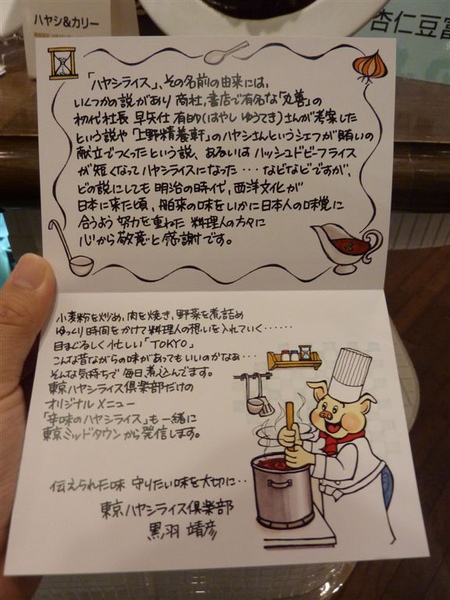 ハヤシ&カリー
杏仁豆富
「ハヤシライス」、その名前の由来には、
いくつかの説があり 商社、書店で有名な「丸善」の
初代社長 早矢仕 有的(はやし ゆうてき)さんが考案した
という説や「上野精養軒」のハヤシさんというシェフが賄いの
献立でつくったという説、あるいは ハッシュドビーフライス
が短くなってハヤシライスになった・・・などなどですが、
どの説にしても 明治の時代、西洋文化が
日本に来た頃、舶来の味をいかに日本人の味覚に
合うよう 努力を重ねた 料理人の方々に
心から敬意と感謝です。
小麦粉を炒め、肉を焼き、野菜を煮詰め
ゆっくり時間をかけて料理人の想いを入れていく・・・・・・
目まぐるしく忙しい「TOKYO」
こんな昔ながらの味があってもいいのかなぁ・・・
そんな気持ちで 毎日煮込んでます。
東京ハヤシライス倶楽部だけの
オリジナルメニュー
「辛味のハヤシライス」も一緒に
東京ミッドタウンから発信します。
伝えられた味 守りたい味を大切に・・
東京ハヤシライス倶楽部
黒羽 靖彦